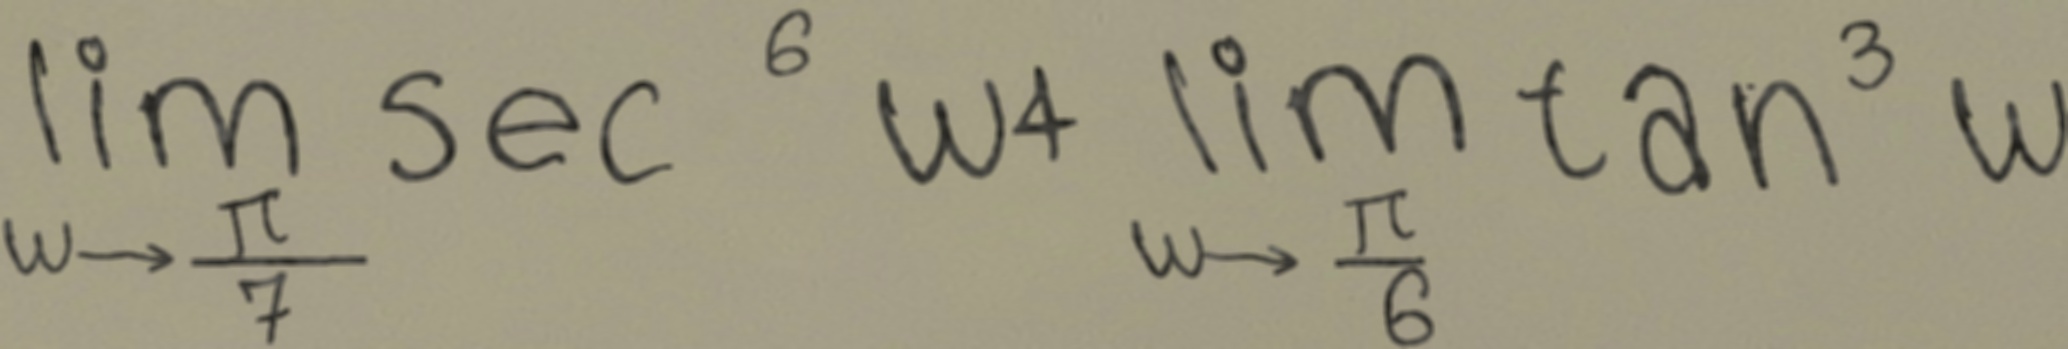 \lim_{w \to \frac{\pi}{7}} \sec^{6} w + \lim_{w \to \frac{\pi}{6}} \tan^{3} w